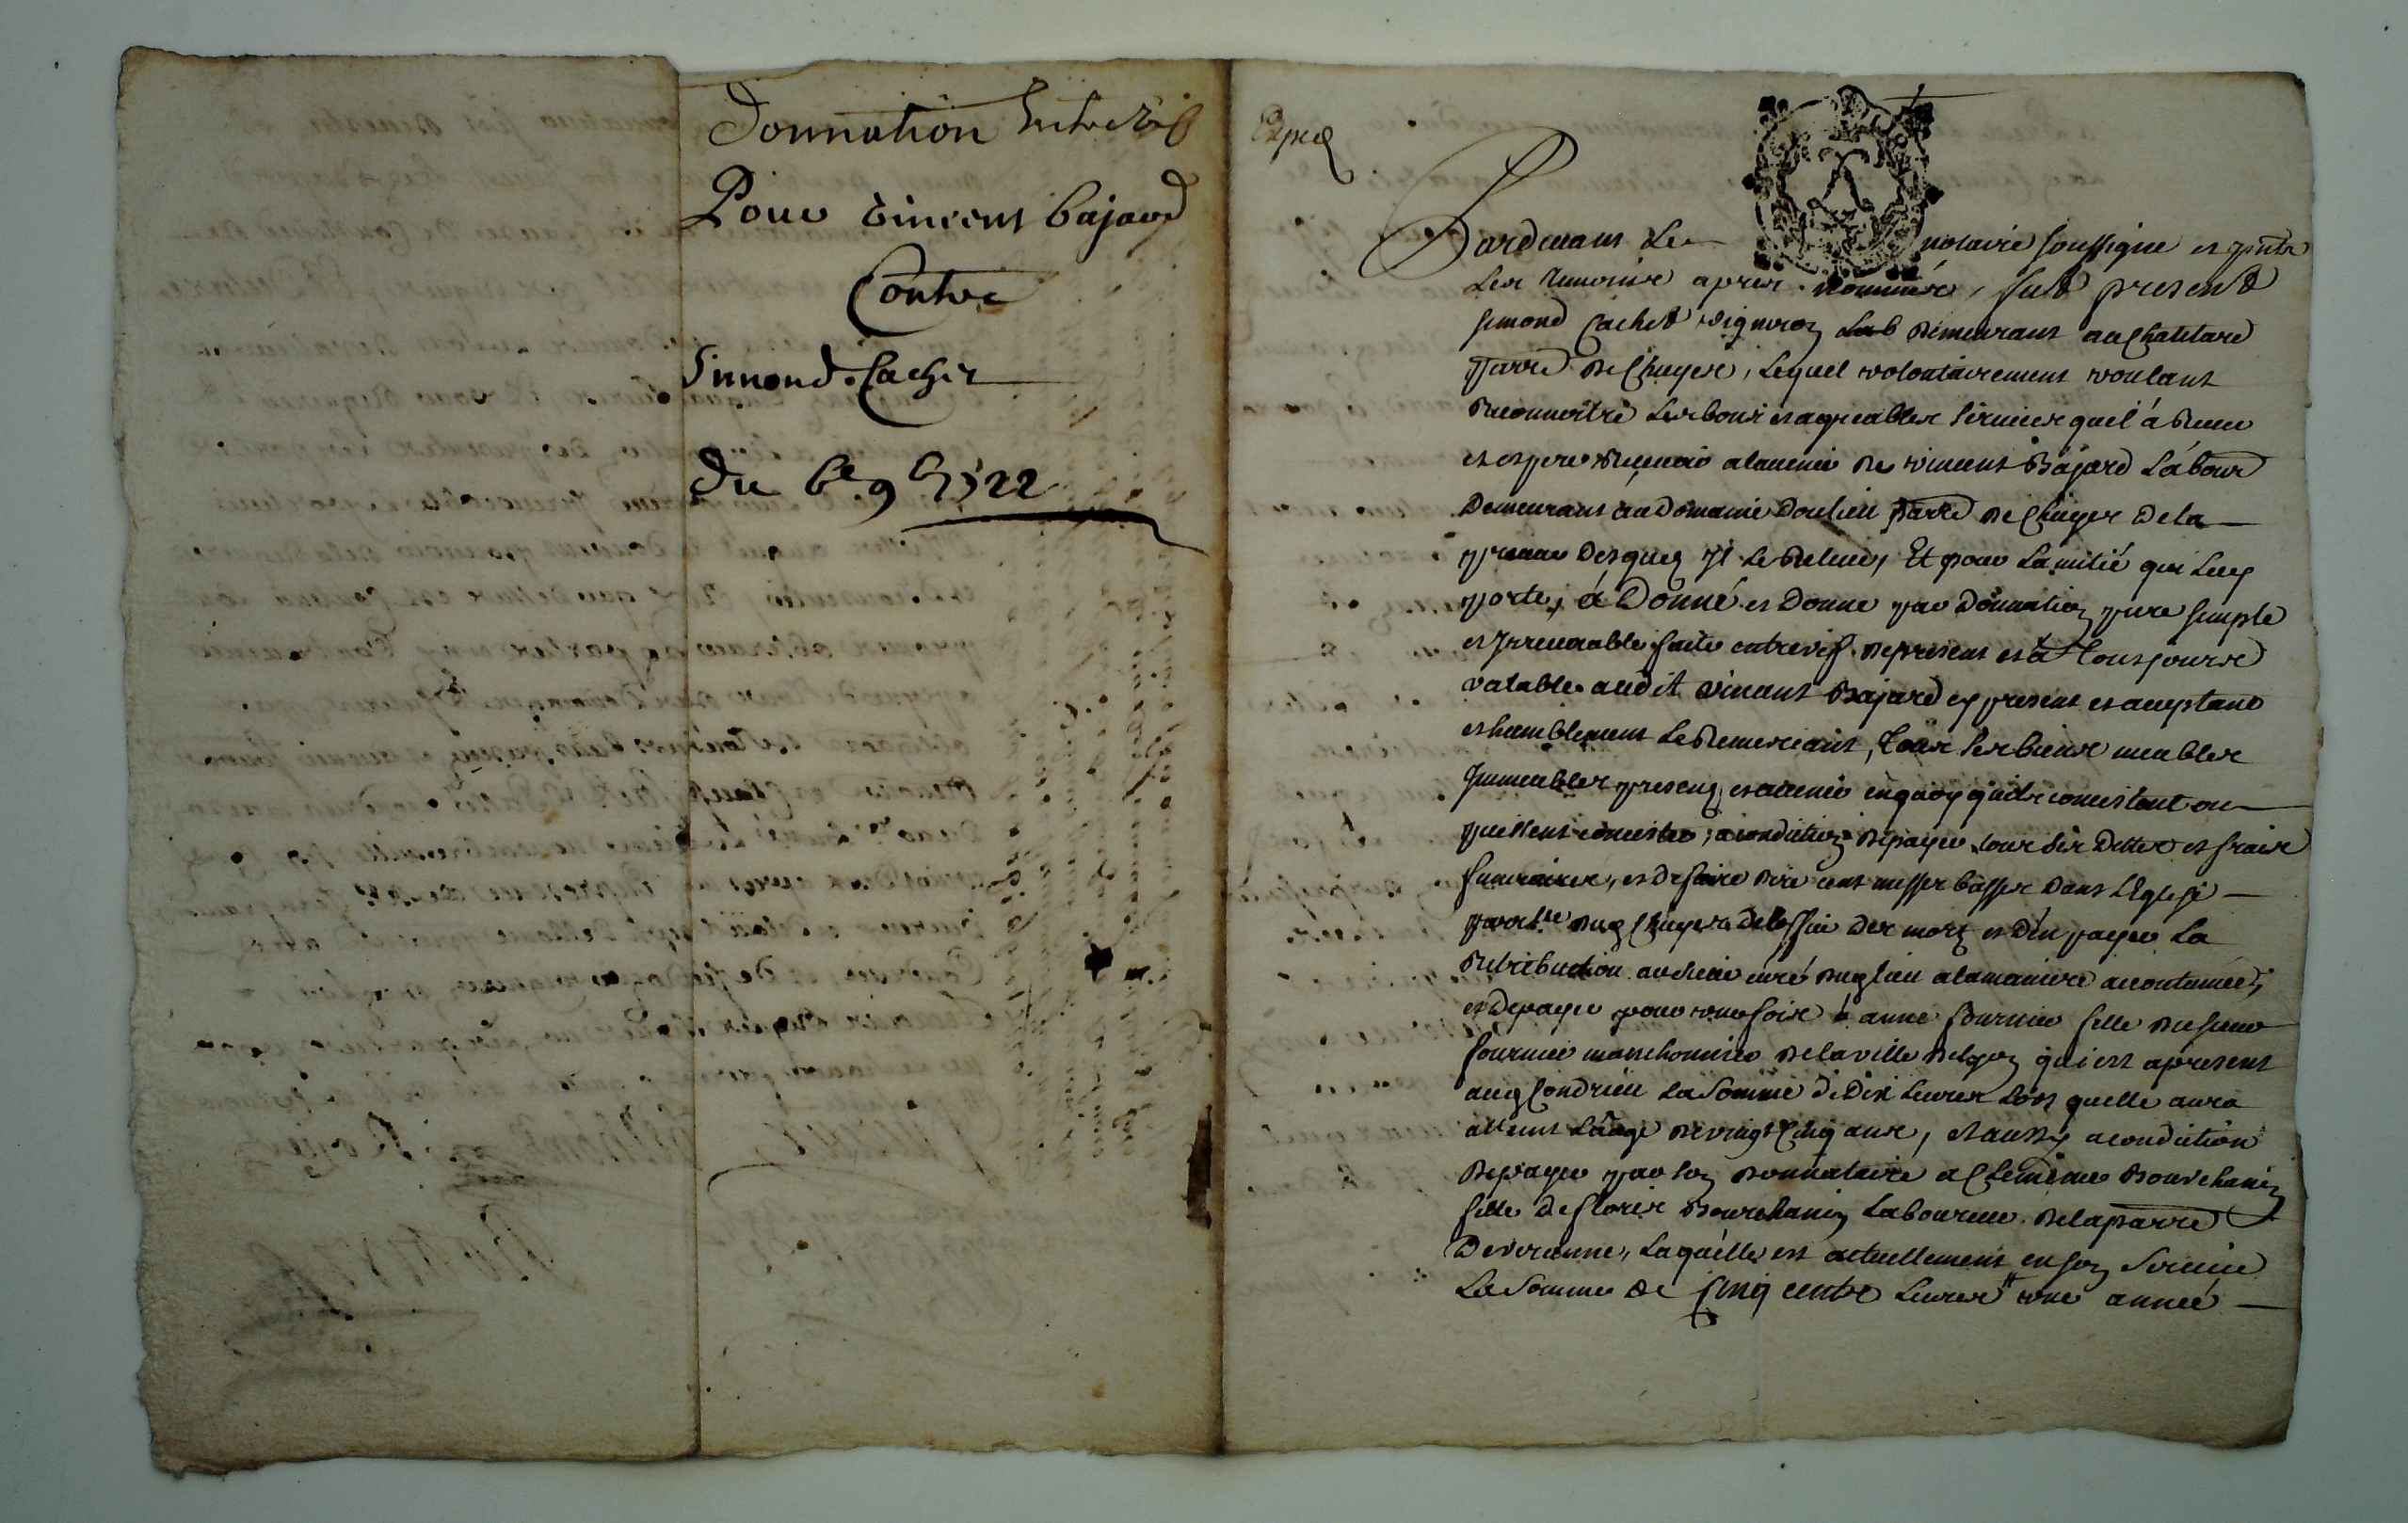 Donnation Entre vifs
Pour vincent bajard
Contre
Simond Cachet
Du 6e 9b 1722
Expeé
Pardevant Le notaire soussigné et pnts
Les temoins apres nommés, fust present
simond Cachet vigneron demeurant au Chatelard
parre de Chuyer, Lequel volontairement voulant
reconnoitre Les bons et agreables services quil á receu
et espere recevoir alavenir de vincent Bajard Labour
Demeurant au domaine Doulieu parre de Chuyer De la
preuve Desquels Il Le releve, Et pour Lamitié qui Luy
porte, á Donné et Donne par Donnation pure simple
et Irrevocable faite entrevifs depresent et á Tousjours
valable audit vincent Bajard cy present et aceptant
et humblement Le Remerciant, Tous ses biens meubles
Immeubles presents et avenir enquoy quils consistent ou
puissent consister, acondiction depayer tous ses Dettes et frais
funeraires, et de faire dire cent messes basses Dans LEglise
parrlle dud Chuyer de loffice des morts et den payer La
retribution au sieur curé dud lieu alamaniere accoutumée,
et depayer pour une fois á anne fournier fille de feu
fournier delaville delyon qui est apresent
aud Condrieu La Somme de Dix Livres Lors quelle aura
atteint Laage de vingt Cinq ans, et aussy acondiction
depayer par son donnataire a Clemence Bourchanin
fille de Floris Bourchanin Laboureur delaparre
Deveranne, Laquelle est actuellement en son service
La Somme de Cinq cents Livres une année